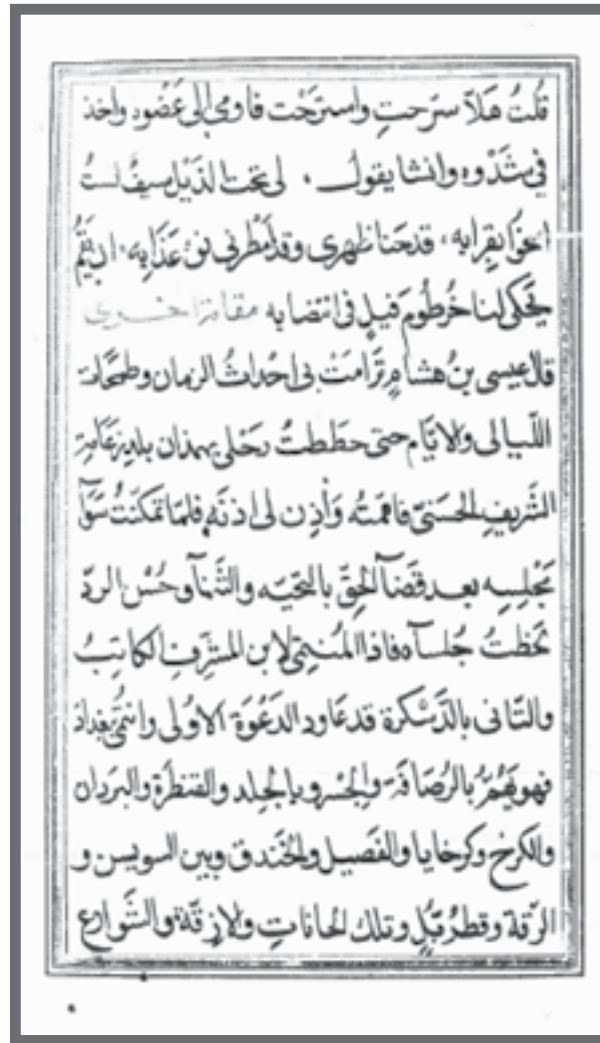 قُلتُ هَلاّ سرّحتِ واسترحْت فاومى الى عَضُود واخذ
فى شَدْوه وانشا يقول لى تحتا لذَيْل سيفٌ لستُ
اخوا بقرابه قدحنا ظهرى وقد امْطرنى نوء عَذَابِه ان يَقُمْ
يحَكى لنا خُرطُوم فيلٍ فى انتضابه مقامة اخرى
قال عيسى بنُ هشامٍ ترَامَتْ بى احْداثُ الزمان وطمحَات
اللّيالى والايّام حتى حطَطتُ رحْلى بهمذان بلد
الشّريفِ الحسَنىّ فاقمتُه وَاذِن لى اذنَه فلمّا تمكَنَتُ
مَجْلِسِه بعد قَضآ الحقّ بالتحَيّه والثَّنآ وحُسْن الردّ
لحظتُ جُلسآه فاذا المُنتمى لابن المسترف الكاتِبُ
والثانى بالدّسْكرة قد عاود الدَعْوَة الاوْلى وانتمى بغداذ
فهو يَقسمُ بالرُصَافَة والجسْر وبالجلد والقنطرَة والبرَدان
والكرخ وكرخايا والفَصيل والخندق وبين السويسن و
الرّقة وقطرُبّلٍ وتلك الحاناتِ والازِقّة والشَّوارع